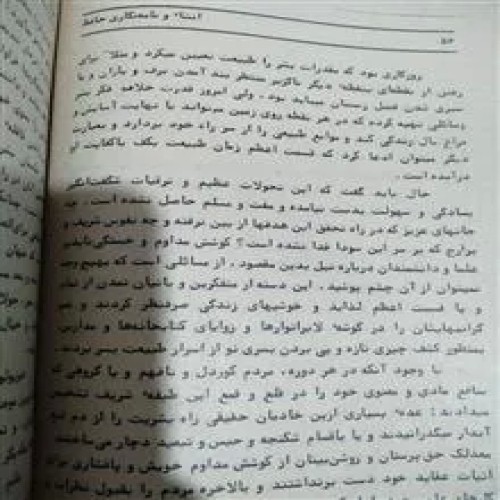 انشاء و نامه‌نگاری حافظ
۵۶
روزگاری بود که مقدرات بشر را طبیعت تعیین میکرد و مثلا برای
رفتن از نقطه‌ای بنقطهء دیگر ناگزیر منتظر بند آمدن برف و باران و یا
سپری شدن فصل زمستان میباید بود. ولی امروز قدرت خلاقهء فکر بشر
وسائلی تهیه کرده که در هر نقطه روی زمین میتواند با نهایت آسایش و
فراغ بال زندگی کند و موانع طبیعی را از سر راه خود بردارد و بعبارت
دیگر میتوان ادعا کرد که قسمت اعظم زمان طبیعت بکف باکفایت او
درآمده است.
حال باید گفت که این تحولات عظیم و ترقیات شگفت‌انگیز
بسادگی و سهولت بدست نیامده و مفت و مسلم حاصل نشده است. چه
جانهای عزیز که در راه تحقق این هدفها از بین نرفته و چه نفوس شریف و
که بر سر این سودا فدا نشده است؟ کوشش مداوم و خستگی‌ناپذیر
علما و دانشمندان درباره نیل بدین مقصود، از مسائلی است که بهیچ وجه
نمیتوان از آن چشم پوشید. این دسته از متفکرین و بانیان تمدن از تمام
و یا قسمت اعظم لذاید و خوشیهای زندگی صرفنظر کردند و عمر
گرانبهایشان را در گوشهء لابراتوارها و زوایای کتابخانه‌ها و مدارس
بمنظور کشف چیزی تازه و پی بردن بسری نو از اسرار طبیعت بسر بردند.
با وجود آنکه در هر دوره، مردم کوردل و نافهم و یا گروهی که
منافع مادی و معنوی خود را در قلع و قمع این طبقهء شریف تشخیص
میدادند؛ عدهء بسیاری ازین خادمان حقیقی راه بشریت را از دم تیغ
آبدار میگذرانیدند و یا باقسام شکنجه و حبس و تبعید دچار می‌ساختند
معذلک حق‌پرستان و روشن‌بینان از کوشش مداوم خویش و پافشاری برای
اثبات عقاید خود دست برنداشتند و بالاخره مردم را بقبول نظرات